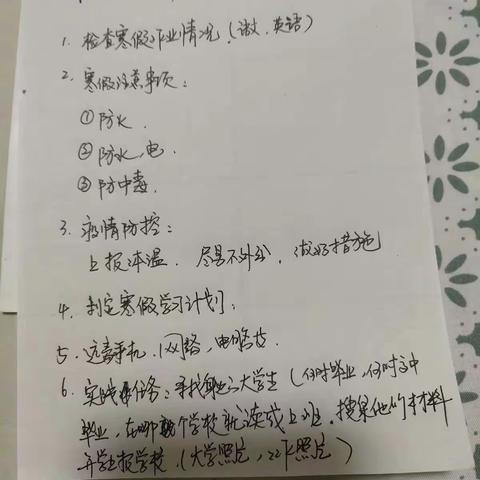 1. 检查寒假作业情况.(数.英语)
2. 寒假注意事项:
①防火.
②防水,电.
③防中毒.
3. 疫情防控:
上报体温. 尽量不外出, 做好措施
4. 制定寒假学习计划.
5. 远离手机.网络,电脑
6. 实践任务:寻找 大学生(何时毕业,何时高中
毕业,在哪 个学校就读或上班.搜集他们材料
并上报学校.(大学照片, 照片)